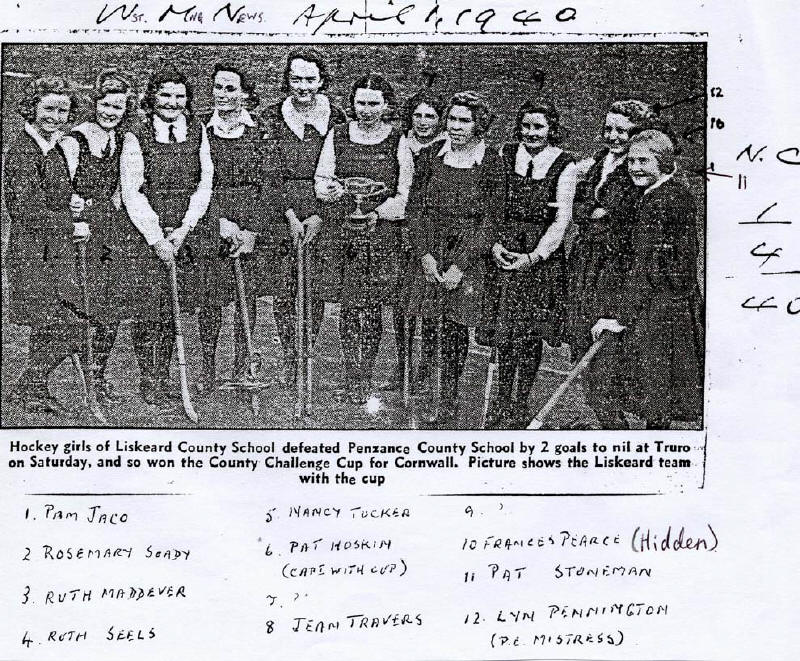 Wst. Mng News. April 1, 1940
12
10
11
N. C
1
4
40
1 2 3 5 6 8
Hockey girls of Liskeard County School defeated Penzance County School by 2 goals to nil at Truro
on Saturday, and so won the County Challenge Cup for Cornwall. Picture shows the Liskeard team
with the cup
1. PAM JACO
2 ROSEMARY SOADY
3. RUTH MADDEVER
4. RUTH SEELS
5 NANCY TUCKER
6. PAT HOSKIN
(CAPT WITH CUP)
7. ?
8 JEAN TRAVERS
9. ?
10 FRANCES PEARCE (Hidden)
11 PAT STONEMAN
12. LYN PENNINGTON
(P.E. MISTRESS)